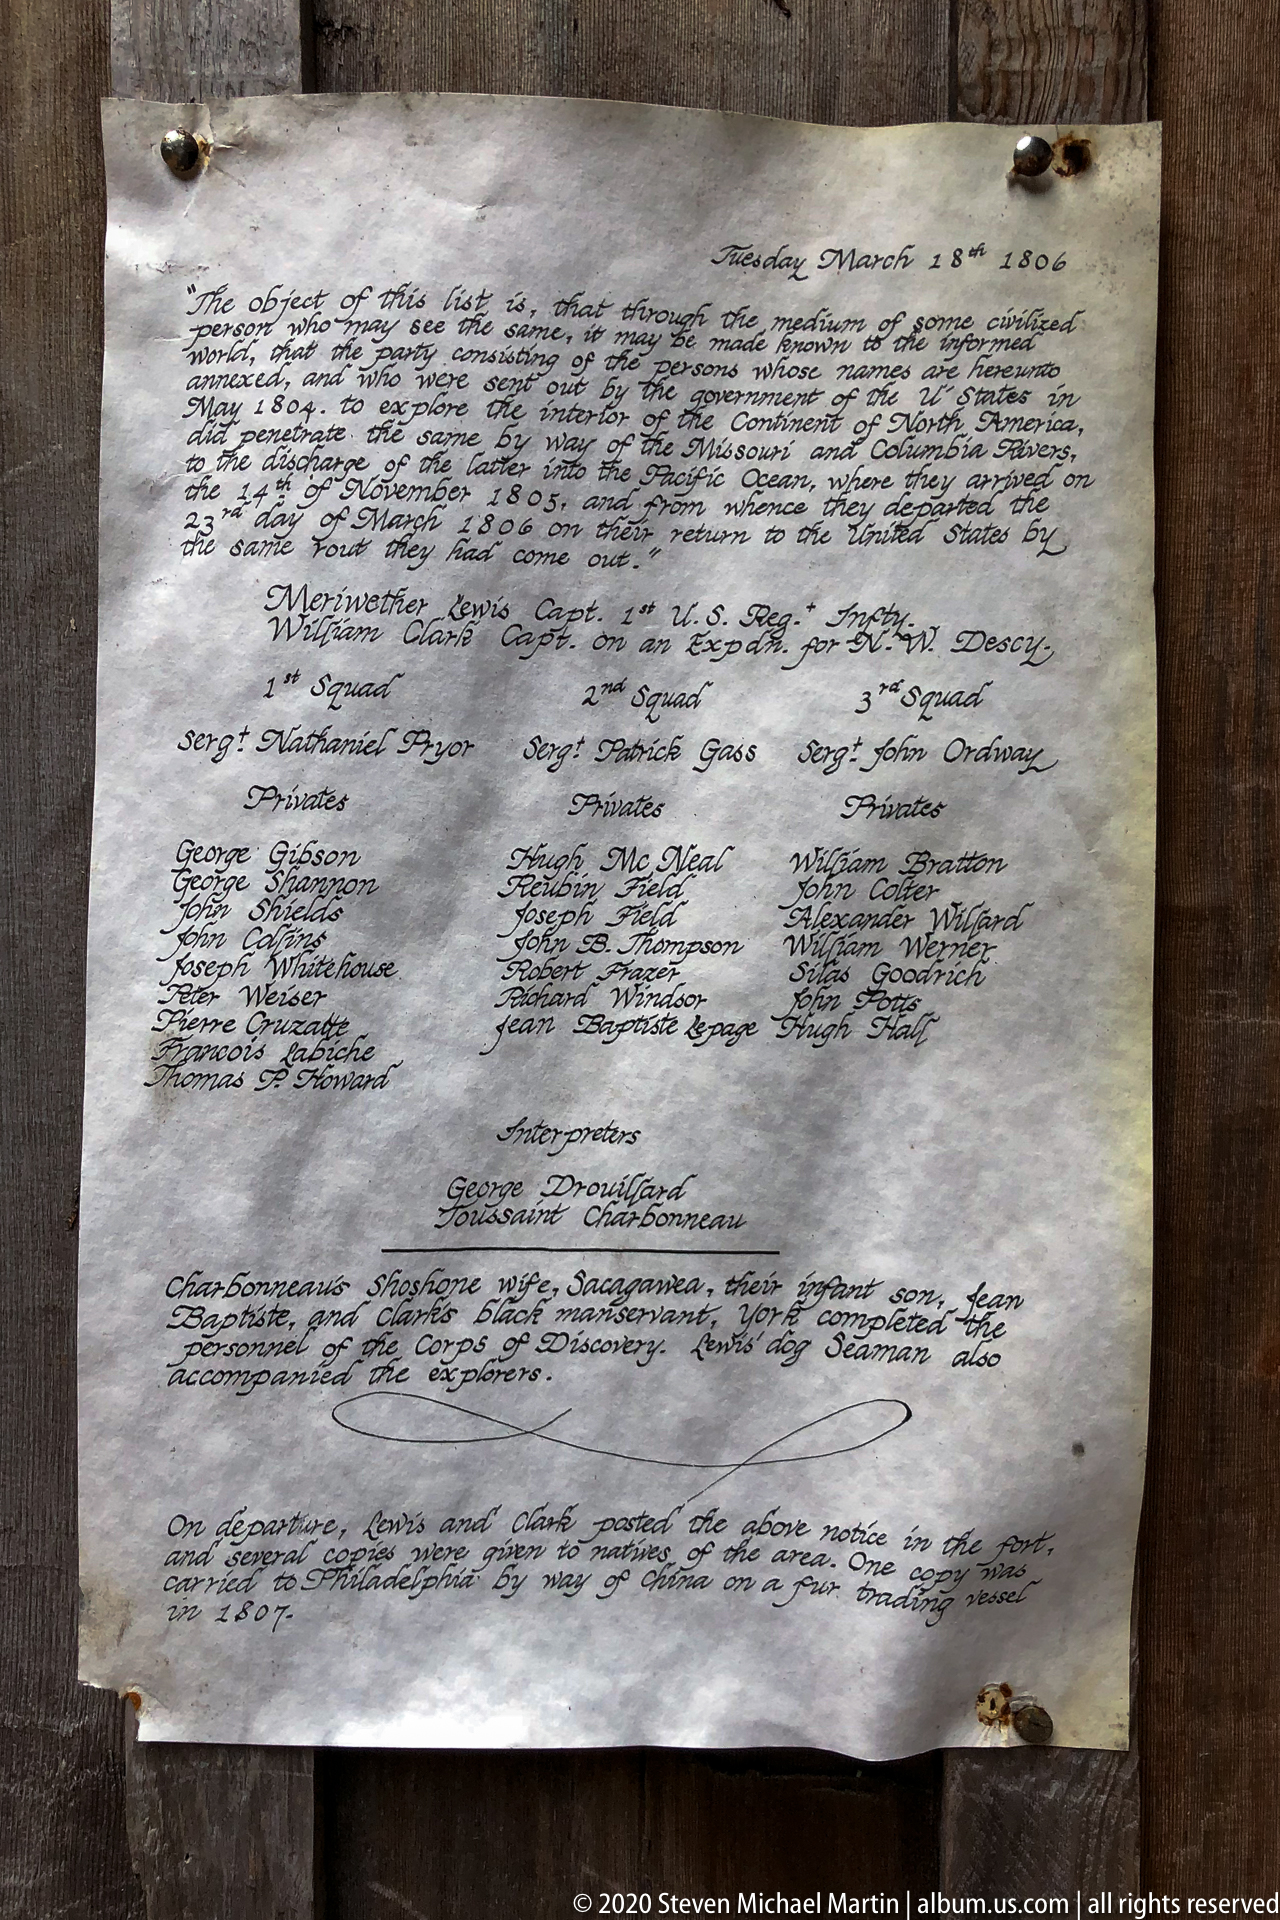 Tuesday March 18th 1806
"The object of this list is, that through the medium of some civilized
person who may see the same, it may be made known to the informed
world, that the party consisting of the persons whose names are hereunto
annexed, and who were sent out by the government of the U' States in
May 1804. to explore the interior of the Continent of North America,
did penetrate the same by way of the Missouri and Columbia Rivers,
to the discharge of the latter into the Pacific Ocean, where they arrived on
the 14th of November 1805, and from whence they departed the
23rd day of March 1806 on their return to the United States by
the same rout they had come out."
Meriwether Lewis Capt. 1st U.S. Reg.t Infty.
William Clark Capt. on an Expdn. for N.W. Descy.
1st Squad 2nd Squad 3rd Squad
Sergt. Nathaniel Pryor Sergt. Patrick Gass Sergt. John Ordway
Privates Privates Privates
George Gibson Hugh Mc Neal William Bratton
George Shannon Reubin Field John Colter
John Shields Joseph Field Alexander Willard
John Collins John B. Thompson William Werner
Joseph Whitehouse Robert Frazer Silas Goodrich
Peter Weiser Richard Windsor John Potts
Pierre Cruzatte Jean Baptiste Lepage Hugh Hall
Francois Labiche
Thomas P. Howard
Interpreters
George Drouillard
Toussaint Charbonneau
Charbonneau's Shoshone wife, Sacagawea, their infant son, Jean
Baptiste, and Clark's black manservant, York completed the
personnel of the Corps of Discovery. Lewis' dog Seaman also
accompanied the explorers.
On departure, Lewis and Clark posted the above notice in the fort,
and several copies were given to natives of the area. One copy was
carried to Philadelphia by way of China on a fur trading vessel
in 1807.
© 2020 Steven Michael Martin | album.us.com | all rights reserved